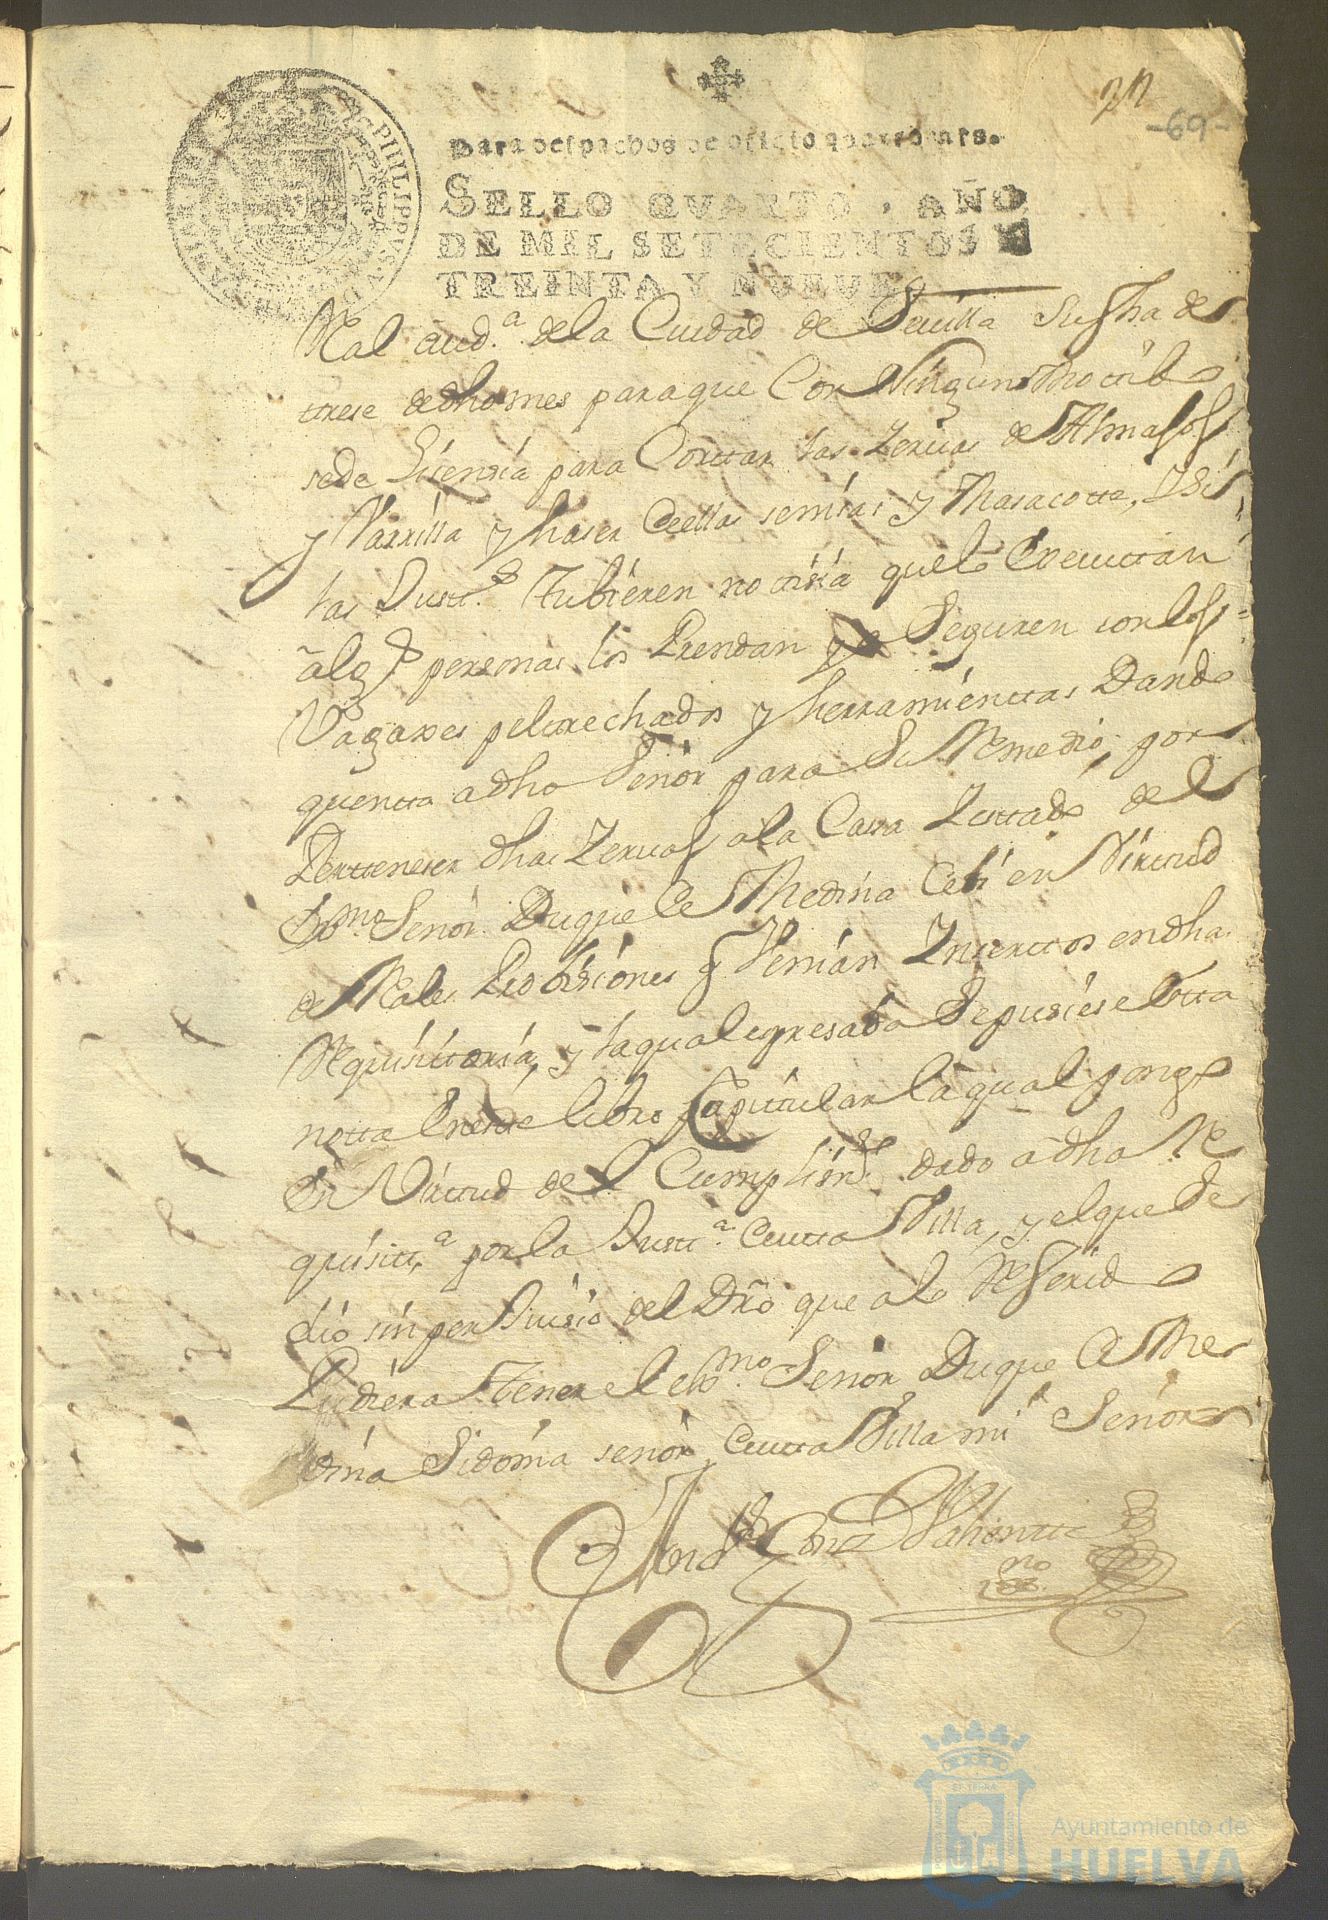 77
-69-
Para despachos de oficio quatro mrs.
SELLO QVARTO, AÑO
DE MIL SETECIENTOS Y
TREINTA Y NUEVE,
PHILIPPVS V D
Rl aud.ª de la Ciudad de Sevilla su fha de
trese de dho mes para que Con Ningun Motibo
se de lisensia para Corttar las Yervas de Almajos
y Varrilla y haser de ellas senisas y Masacotte, y si
las Justt.s tubieren notisia que lo executtan
alg.s personas los Prendan y Seguren con los
Vagaxes peltrechados y herramienttas Dando
quentta a dho Señor para Su Remedio, por
Pertteneser dhas Yervas a la Casa Y esttado de el
Exmo Señor Duque de Medina Celi en Virttud
de Rales Probisiones q Venian Ynserttos en dha
Requisittoria, y la qual espresada Se pusiese
notta En este libro Capitular la qual pongo
En Virttud de el Cumplim.to dado a dha Re
quisitt.ª por la Justt.ª de estta Villa, y el que se
dio sin perJuisio del Dro que a lo Referido
Pudiera tener el exmo Señor Duque de Me
dina Sidonia señor de estta Villa mi Señor
Valientte
Ayuntamiento de
HUELVA